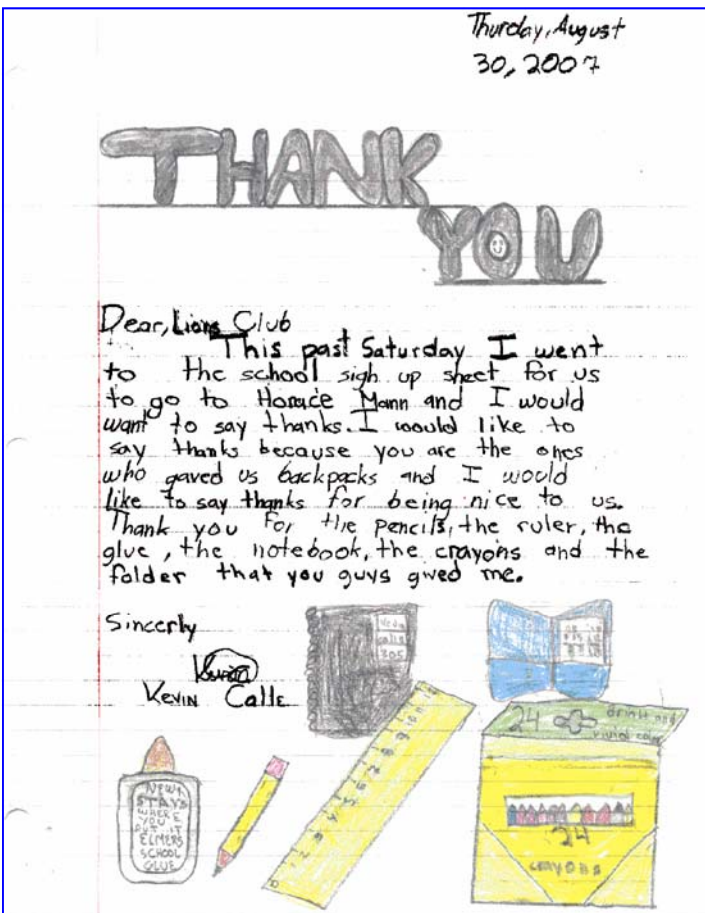 Thurday, August
30, 2007
THANK
YOU
Dear, Lions Club
This past Saturday I went
to the school sigh up sheet for us
to go to Horace Mann and I would
want to say thanks. I would like to
say thanks because you are the ones
who gaved us backpacks and I would
like to say thanks for being nice to us.
Thank you for the pencils, the ruler, the
glue, the notebook, the crayons and the
folder that you guys gived me.
Sincerly
Kevin Calle
calle
305
24
vivid color
NEW!
STAYS
WHERE
YOU
PUT IT
ELMERS
SCHOOL
GLUE
24
crayons